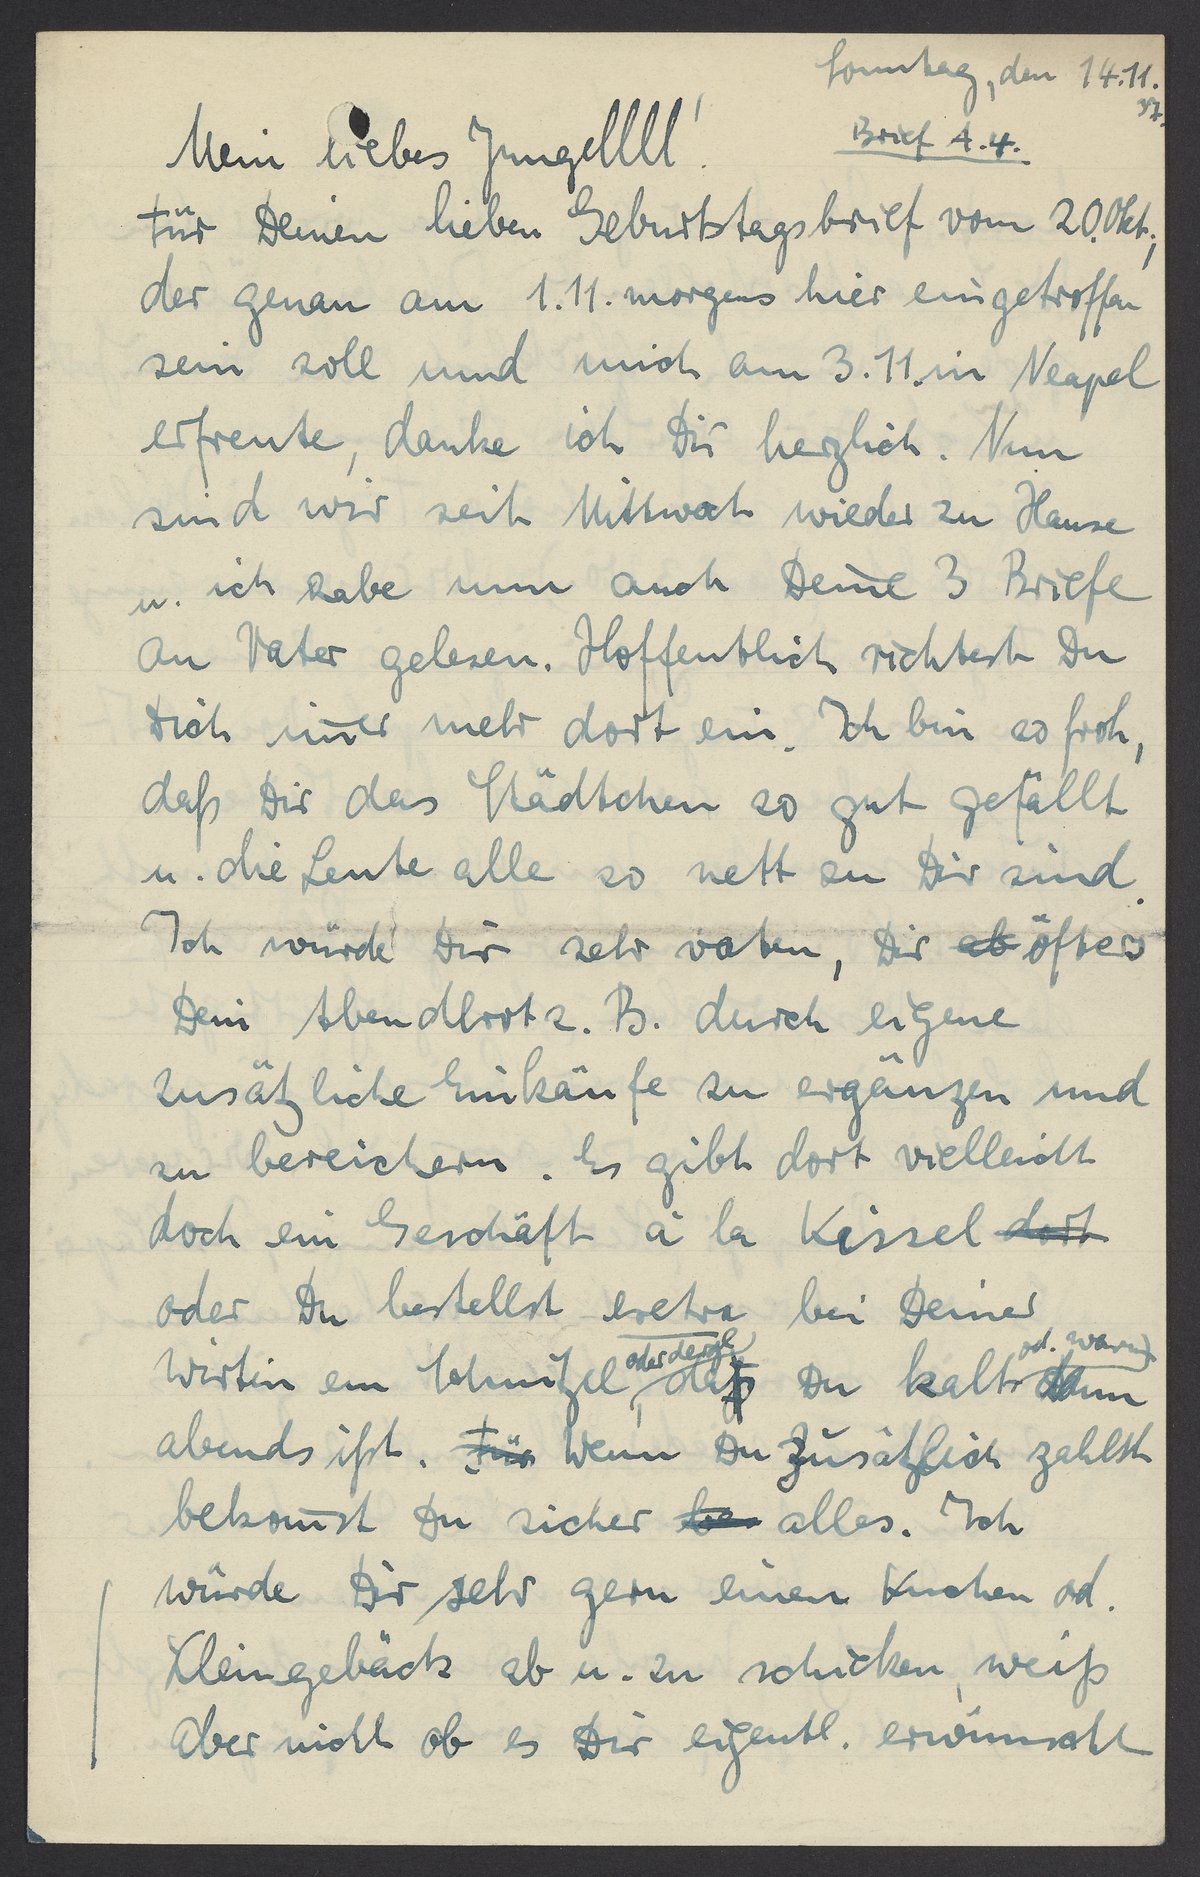 Sonntag, den 14.11.
37.
Brief A. 4.
Mein liebes Jungellll!
Für Deinen lieben Geburtstagsbrief vom 20. Okt.,
der genau am 1.11. morgens hier eingetroffen
sein soll und mich am 3.11. in Neapel
erfreute, danke ich Dir herzlich. Nun
sind wir seit Mittwoch wieder zu Hause
u. ich habe nun auch Deine 3 Briefe
an Vater gelesen. Hoffentlich richtest Du
Dich im̄er mehr dort ein. Ich bin so froh,
daß Dir das Städtchen so gut gefällt
u. die Leute alle so nett zu Dir sind.
Ich würde Dir sehr raten, Dir ab öfters
Dein Abendbrot z. B. durch eigene
zusätzliche Einkäufe zu ergänzen und
zu bereichern. Es gibt dort vielleicht
doch ein Geschäft à la Kissel dort
oder Du bestellst extra bei Deiner
oder dergl. od. warm
Wirtin ein Schnitzel, daß Du kalt dann
abends ißt. Für Wenn Du zusätzlich zahlst
bekom̄st Du sicher be alles. Ich
würde Dir sehr gern einen Kuchen od.
Kleingebäck ab u. zu schicken, weiß
aber nicht ob es Dir eigentl. erwünscht